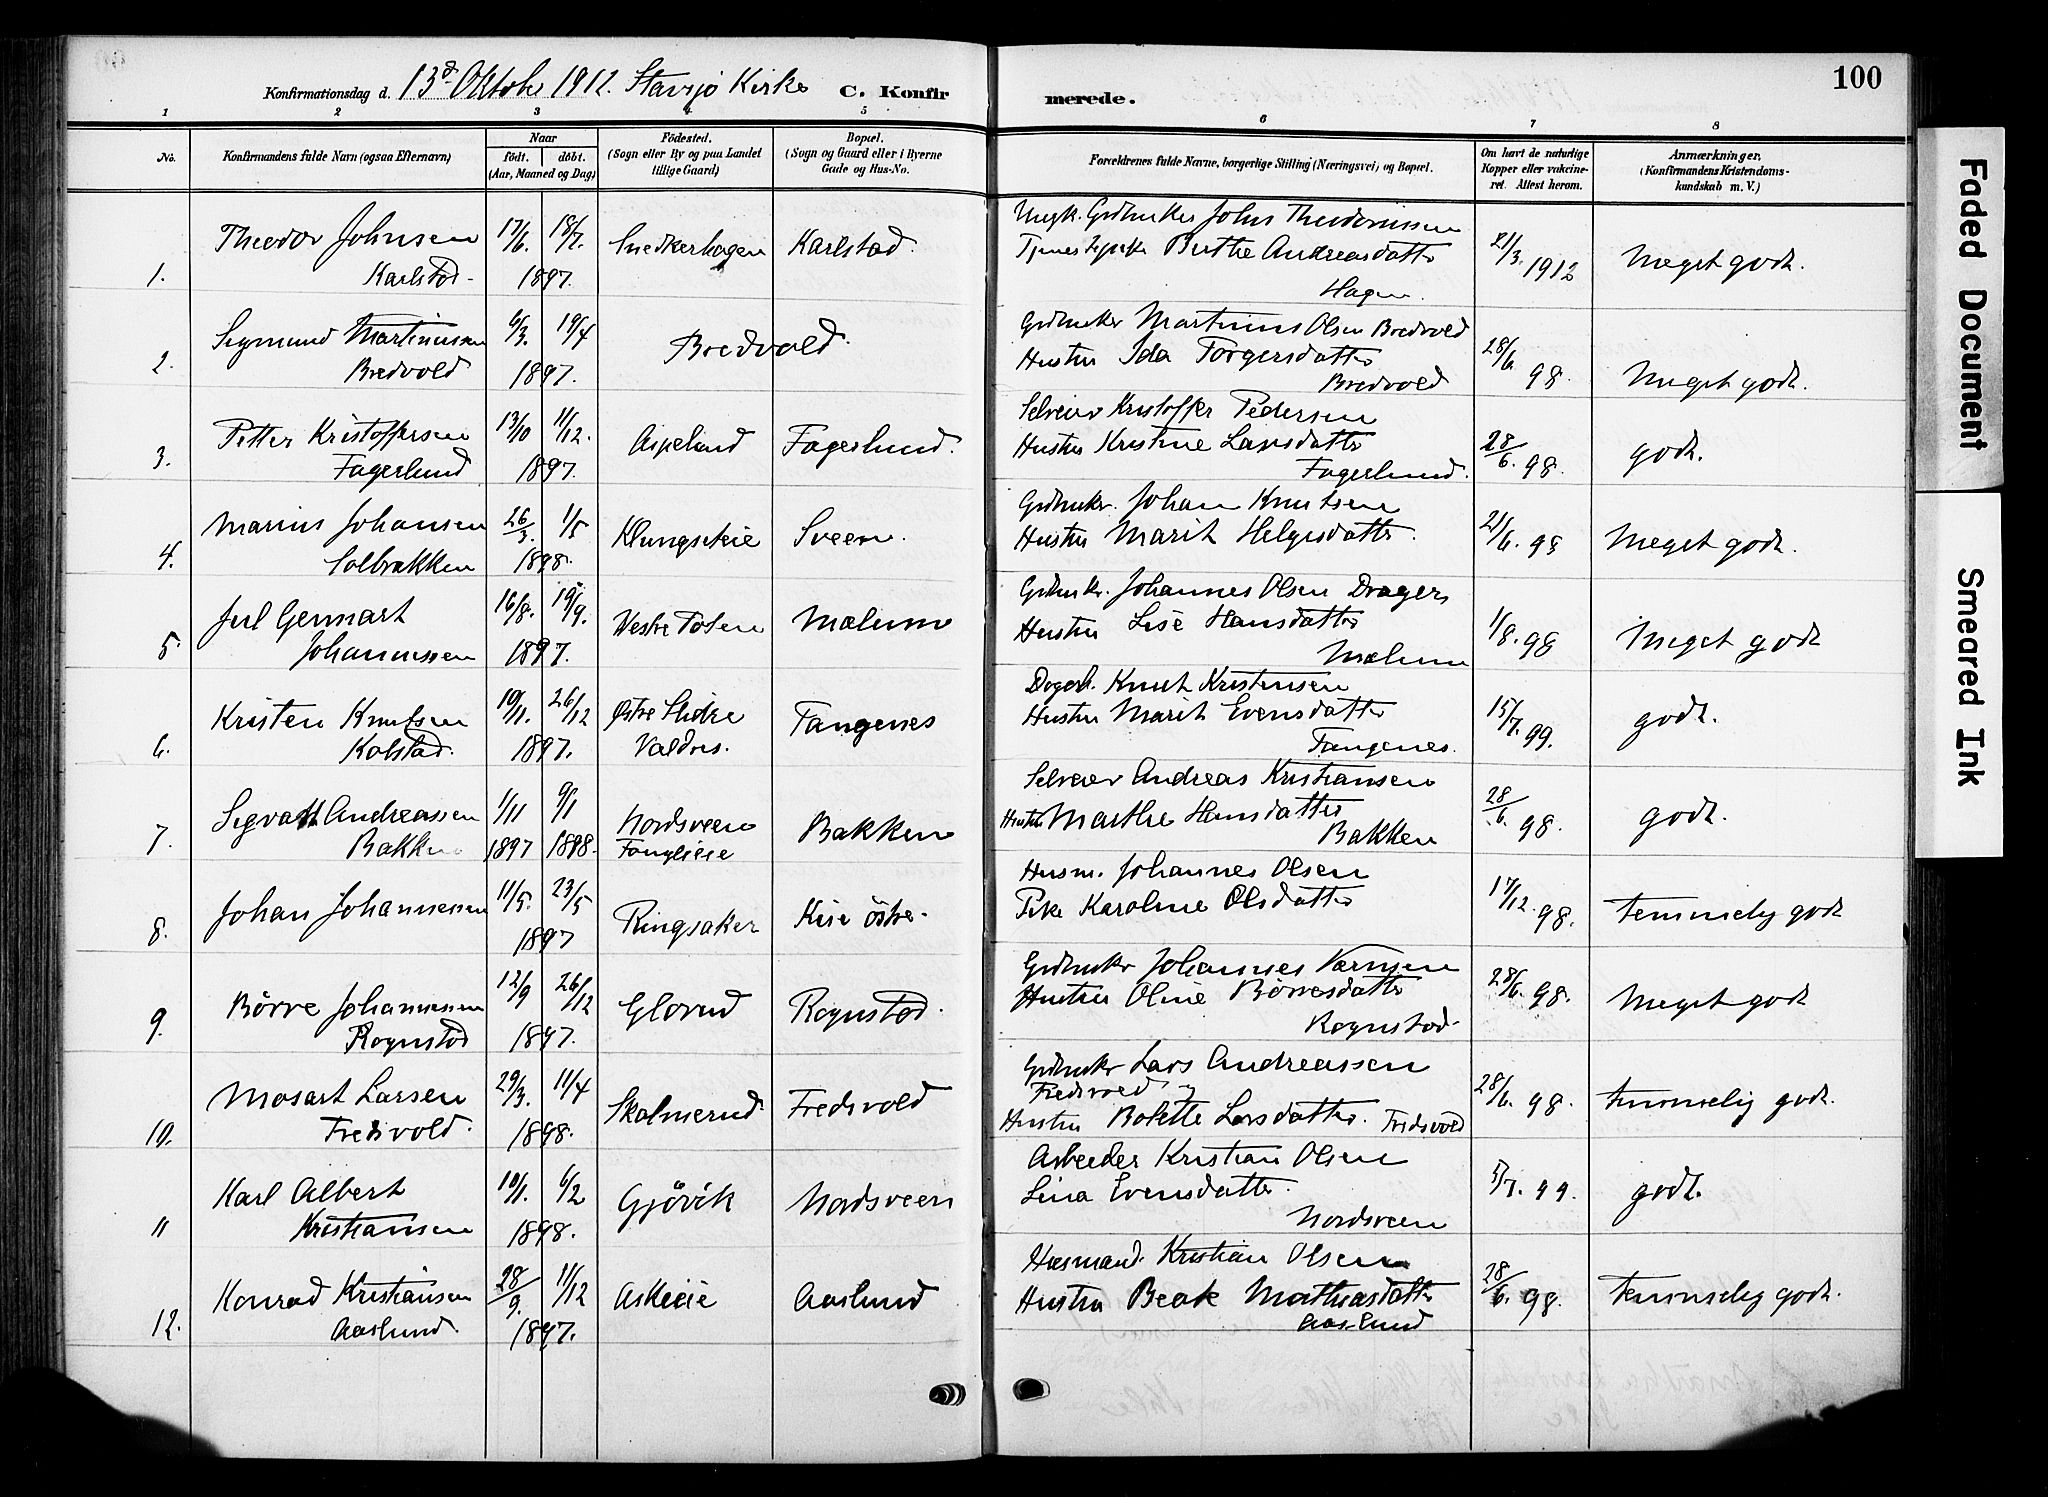 Konfirmationsdag d. 13de Oktobr 1912. Stavsjø Kirke C. Konfir
merede. 100
1 2 3 4 5 6 7 8
No.
Konfirmandens fulde Navn (ogsaa Efternavn)
Naar
födt. döbt.
(Aar, Maaned og Dag)
Födested.
(Sogn eller By og paa Landet
tillige Gaard)
Bopæl.
(Sogn og Gaard eller i Byerne
Gade og Hus-No.
Forældrenes fulde Navne, borgerlige Stilling (Næringsvei) og Bopæl.
Om havt de naturlige
Kopper eller vakcine-
ret. Attest herom.
Anmærkninger.
(Konfirmandens Kristendoms-
kundskab m. V.)
1. Theodor Johnsen
Karlstad
17/6. 18/7.
1897.
Snedkerhagen
Karlstad
Ungk. Grdbruker Johs Theodorissen
Berthe Andreasdatter
Hagen.
21/3. 1912
Meget godt.
2. Sigmund Martiniussen
Bredvold
6/3. 19/4
1897.
Bredvold.
Grdbruker Martinius Olsen Bredvold
Hustru Ida Torgersdatter
Bredvold
28/6. 98.
Meget godt.
3. Petter Kristoffersen
Fagerlund
13/10 11/12.
1897.
Aspelund
Fagerlund.
Selveier Kristoffer Pedersen
Hustru Kristine Larsdatter
Fagerlund.
28/6. 98.
godt.
4. Marius Johansen
Solbrækken
26/3. 1/5
1898.
Klungseteie
Sveen.
Grdbruker. Johan Knutsen
Hustru Marit Helgesdatter.
21/6. 98
Meget godt.
5. Jul Gennart
Johannessen
16/8. 19/9.
1897.
Vestre Toten
Mælum
Grdbruker. Johannes Olsen Drager
Hustru Lise Hansdatter
Mælum
1/8. 98
Meget godt
6. Kristen Knutsen
Kolstad.
10/11. 26/12
1897.
Østre Slidre
Valdres.
Tangenes
Dagarb. Knut Kristensen
Hustru Marit Evensdatter
Tangenes.
15/7. 99.
godt.
7. Sigvart Andreassen
Bakken
1/11 9/1
1897 1898.
Nordsveen
Bakken
Selveier Andreas Kristiansen
Hustru Marthe Hansdatter
Bakken
28/6. 98.
godt.
8. Johan Johannessen
11/5. 23/5
1897
Ringsaker
Kise östre.
Husm. Johannes Olsen
Pike Karoline Olsdatter
17/12. 98.
temmelig godt
9. Börre Johannessen
Rognstad
12/9 26/12
1897.
Glorud
Rognstad.
Grdbruker Johannes Larsen
Hustru Oline Börresdatter
Rognstad.
28/6. 98.
Meget godt
10. Mosart Larsen
Fredsvold.
29/3. 11/4
1898.
Skolmerud.
Fredsvold
Grdbruker Lars Andreassen
Fredsvold og
Hustru Bolette Larsdatter. Fredsvold
28/6. 98.
temmelig godt.
11 Karl Albert
Kristiansen
10/1. 6/2
1898.
Gjövik
Nordsveen
Arbeider Kristian Olsen
Lina Evensdatter.
Nordsveen
5/7. 99.
godt.
12. Konrad Kristiansen
Aaslund.
28/9. 11/12
1897.
Askieie
Aaslund
Husmand. Kristian Olsen
Hustru Beate Mathiasdatter
Aaslund
28/6. 98.
temmelig godt.
Faded Document
Smeared Ink